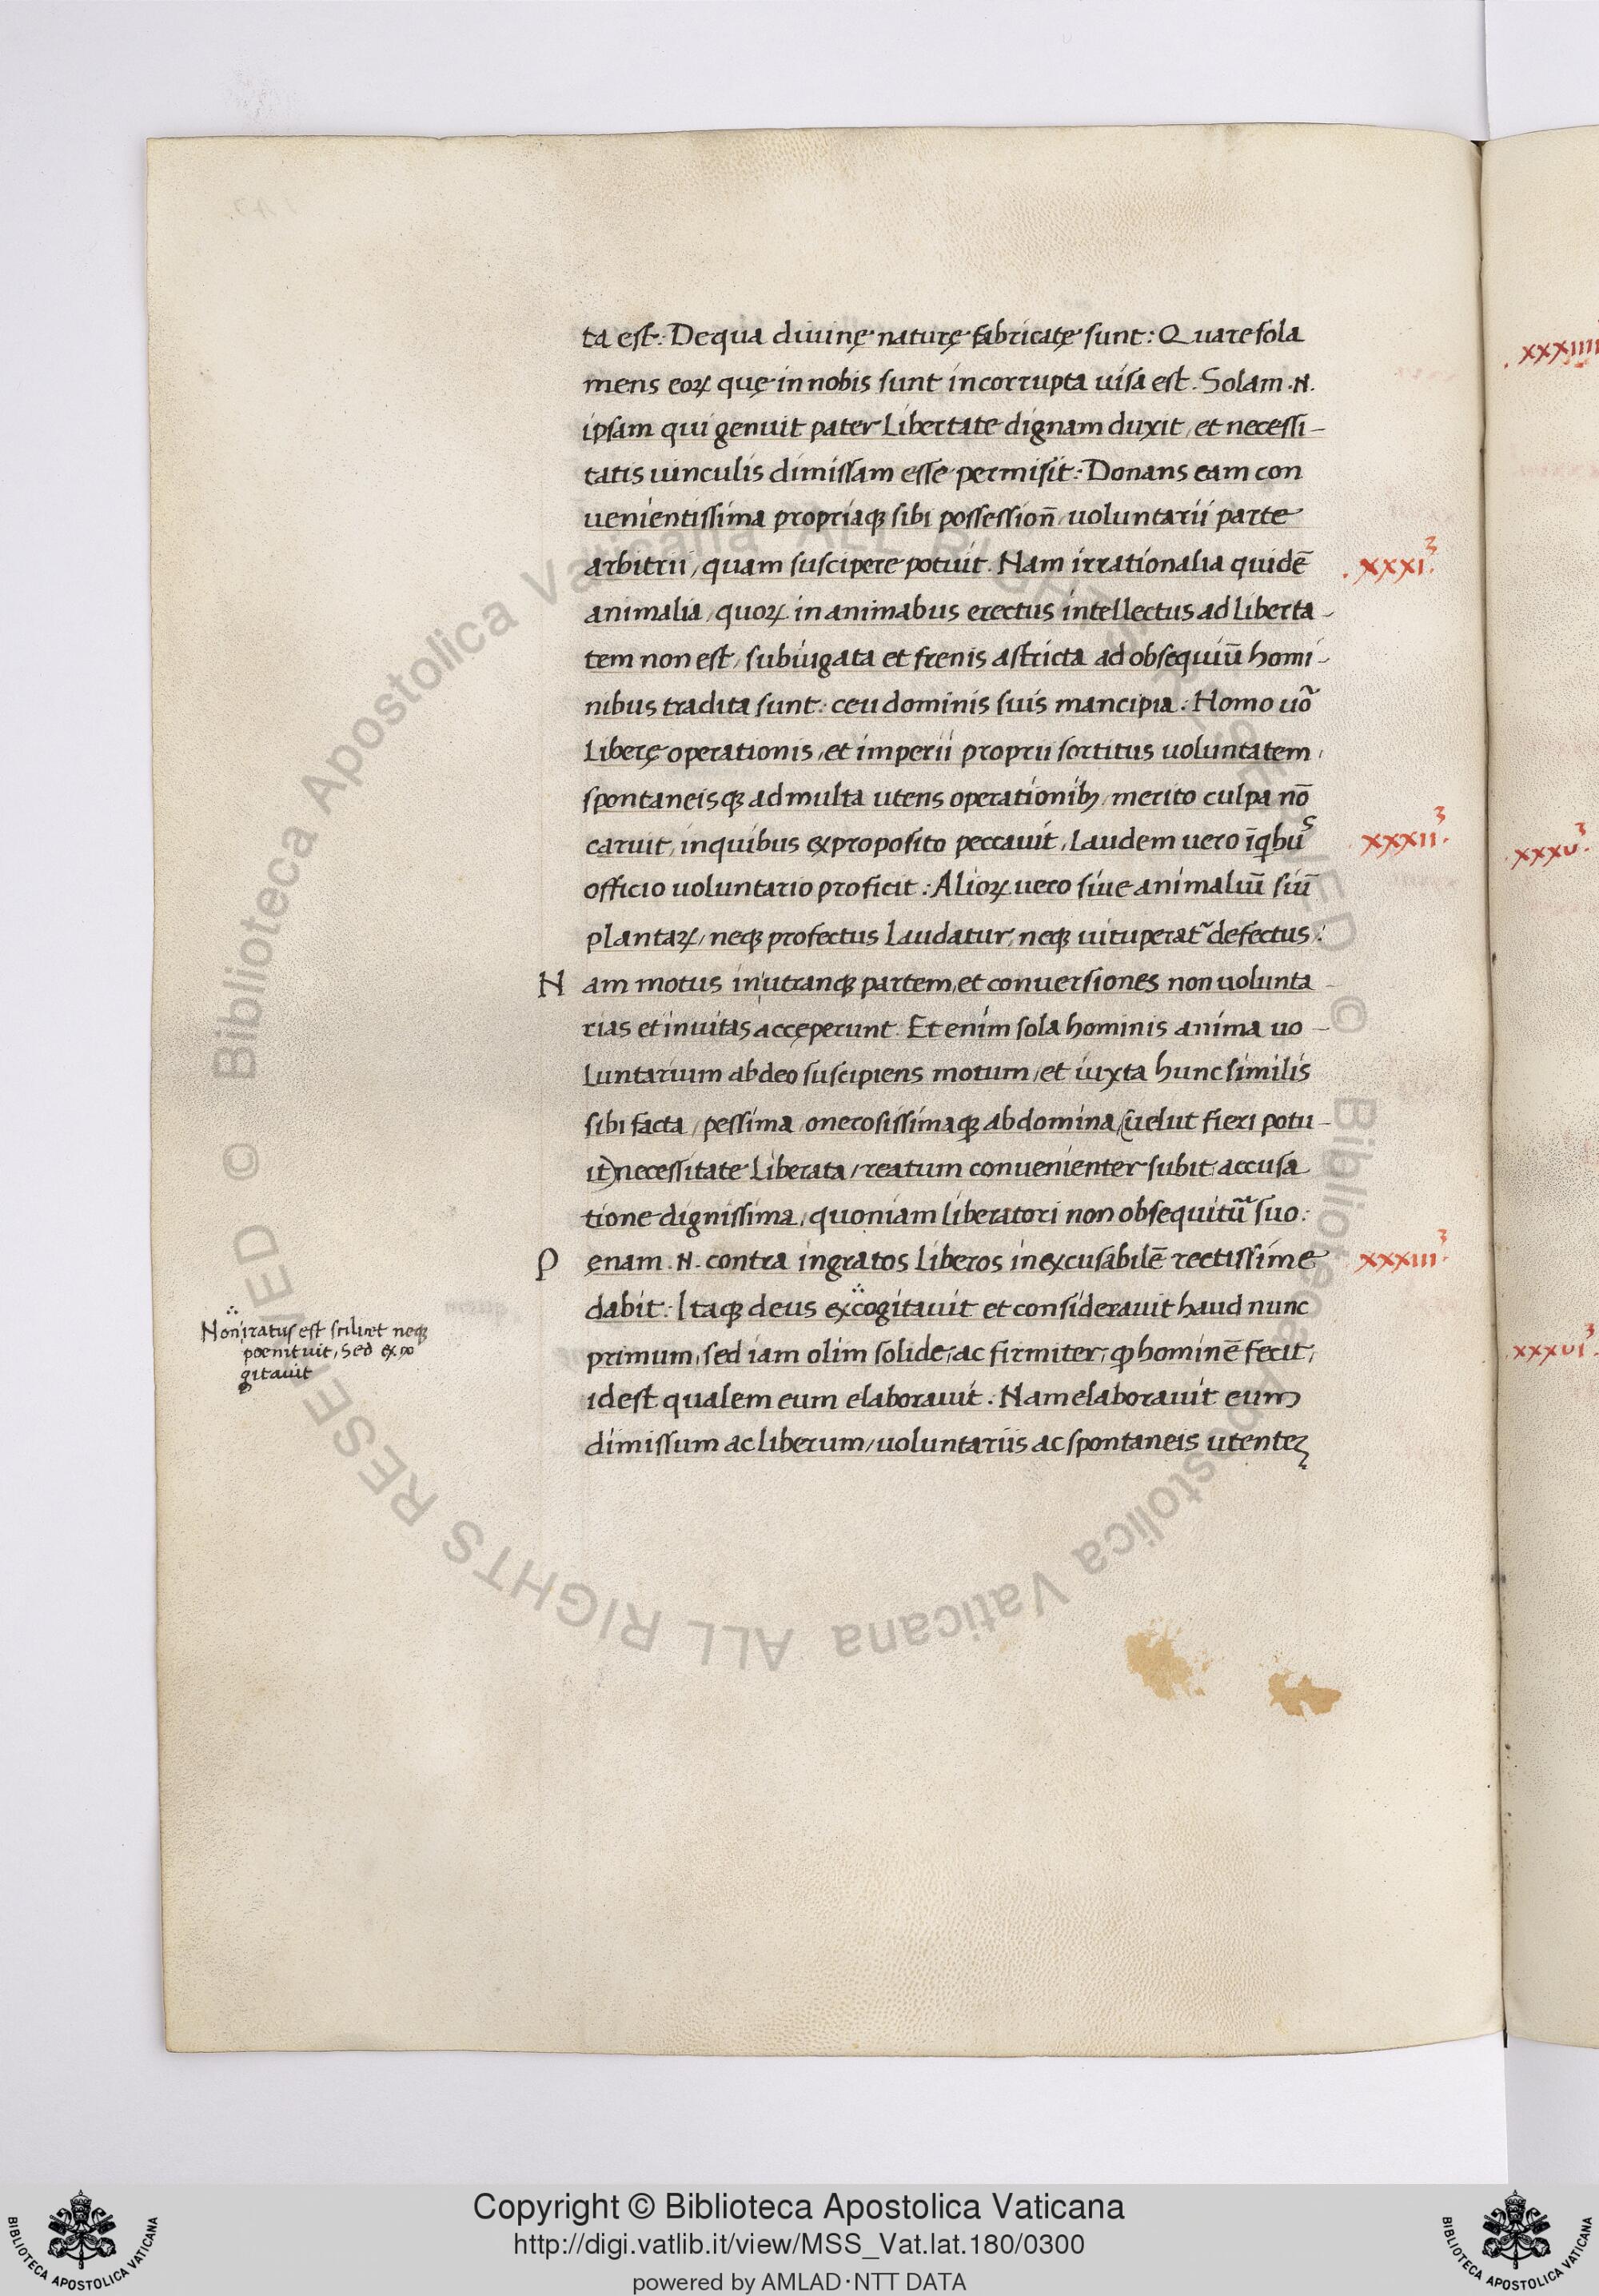 ta est: De qua diuinę naturę fabricatę sunt: Quare sola
mens eoꝝ quę in nobis sunt incorrupta uisa est. Solam .N.
ipsam qui genuit pater libertate dignam duxit, et necessi-
tatis uinculis dimissam esse permisit: Donans eam con
uenientissima propriaqꝫ sibi possession̄ uoluntarii parte
arbitrii, quam suscipere potuit. Nam irrationalia quidē
animalia, quoꝝ in animabus erectus intellectus ad liberta-
tem non est, subiugata et frenis astricta ad obsequiū homi-
nibus tradita sunt: ceu dominis suis mancipia: Homo uo᷉
liberę operationis, et imperii proprii sortitus uoluntatem,
spontaneisqꝫ ad multa utens operationibꝫ, merito culpa nō
caruit, in quibus ex proposito peccauit, Laudem uero īqbuˢ
officio uoluntario proficit: Alioꝝ uero siue animaliū siū
plantaꝝ, neqꝫ profectus laudatur, neqꝫ uituperat᷉ defectus:
Nam motus in utranqꝫ partem, et conuersiones non uolunta-
rias et inuitas accęperunt. Et enim sola hominis anima uo-
luntarium ab deo suscipiens motum, et iuxta hunc similis
sibi facta, pessima, onerosissimaqꝫ ab domina, (uelut fieri potu-
it) necessitate liberata, reatum conuenienter subit accusa
tione dignissima, quoniam liberatori non obsequitu᷉ suo:
Pęnam .N. contra ingratos liberos inexcusabilē rectissime
dabit: Itaqꝫ deus excogitauit et considerauit haud nunc
primum, sed iam olim solide, ac firmiter, ꝙ hominē fecit,
idest qualem eum elaborauit. Nam elaborauit eum
dimissum ac liberum, uoluntariis ac spontaneis utenteꝫ
Non iratus est scilicet neqꝫ
poenituit, Sed exco
gitauit
.xxxi.³
.xxxii.³
xxxiii.³
.xxxiiii
.xxxu.³
.xxxui.³
Copyright © Biblioteca Apostolica Vaticana
http://digi.vatlib.it/view/MSS_Vat.lat.180/0300
powered by AMLAD·NTT DATA
BIBLIOTECA APOSTOLICA VATICANA
BIBLIOTECA APOSTOLICA VATICANA
© Biblioteca Apostolica Vaticana ALL RIGHTS RESERVED © Biblioteca Apostolica Vaticana ALL RIGHTS RESERVED